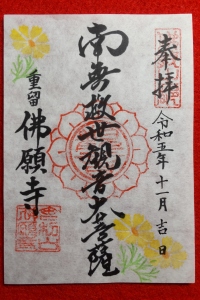 奉拝
令和五年十一月吉日
南無救世観音大菩薩
重留
佛願寺